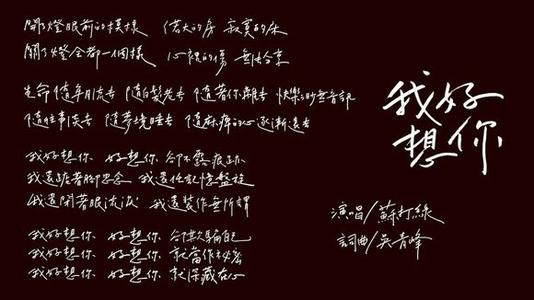 開了燈眼前的模樣 偌大的房 寂寞的床
關了燈全都一個樣 心裡的傷 無法分享
生命隨年月流去 隨白髮老去 隨著你離去 快樂渺無音訊
隨往事淡去 隨夢境睡去 隨麻痺的心逐漸遠去
我好想你 好想你 卻不露痕跡
我還踮著腳思念 我還任記憶盤旋
我還閉著眼流淚 我還裝作無所謂
我好想你 好想你 卻欺騙自己
我好想你 好想你 就當作秘密
我好想你 好想你 就深藏在心
我好想你
演唱/蘇打綠
詞曲/吳青峰